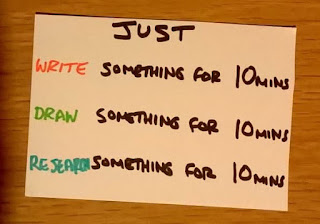 JUST
WRITE SOMETHING FOR 10MINS
DRAW SOMETHING FOR 10MINS
RESEARCH SOMETHING FOR 10MINS